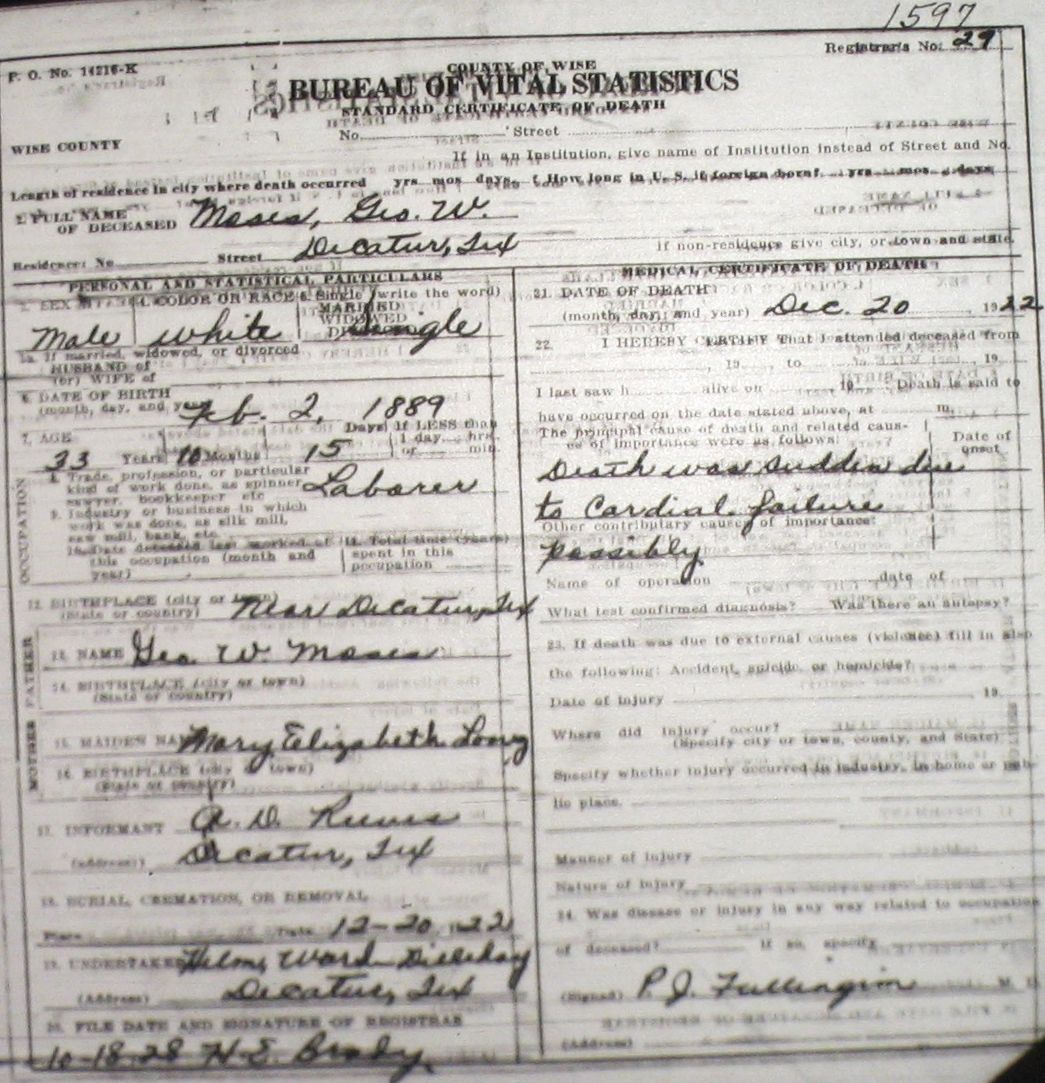 1597
Registrar's No. 29
F. O. No. 14216-K
COUNTY OF WISE
BUREAU OF VITAL STATISTICS
STANDARD CERTIFICATE OF DEATH
No. Street
WISE COUNTY
If in an Institution, give name of Institution instead of Street and No.
Length of residence in city where death occurred yrs mos days. How long in U. S. if foreign born? yrs mos days
2. FULL NAME OF DECEASED Moses, Geo. W.
Residence: No Street Decatur, Tex
If non-residence give city, or town and state.
PERSONAL AND STATISTICAL PARTICULARS
SEX 4. COLOR OR RACE Single (write the word)
MARRIED
WIDOWED
Male white Single
If married, widowed, or divorced
HUSBAND of
(or) WIFE of
6. DATE OF BIRTH
(month, day, and year) Feb. 2, 1889
7. AGE Days If LESS than
33 Years 10 Months 15 1 day hrs. or min.
8. Trade, profession, or particular
kind of work done, as spinner, Laborer
sawyer, bookkeeper etc
9. Industry or business in which
work was done, as silk mill,
saw mill, bank, etc.
10. Date deceased last worked at 11. Total time (years)
this occupation (month and spent in this
year) occupation
OCCUPATION
12. BIRTHPLACE (city or town)
(State or country) Near Decatur, Tex
FATHER
13. NAME Geo. W. Moses
14. BIRTHPLACE (city or town)
(State or country)
MOTHER
15. MAIDEN NAME Mary Elizabeth Long
16. BIRTHPLACE (city or town)
(State or country)
17. INFORMANT Reeves
(address) Decatur, Tex
18. BURIAL, CREMATION, OR REMOVAL
Place Date 12-20, 1922
19. UNDERTAKER Ward
(Address) Decatur, Tex
20. FILE DATE AND SIGNATURE OF REGISTRAR
10-18-28 H. E. Brady
MEDICAL CERTIFICATE OF DEATH
21. DATE OF DEATH
(month, day, and year) Dec. 20, 1922
22. I HEREBY CERTIFY That I attended deceased from
, 19 , to , 19
I last saw h alive on 19 Death is said to
have occurred on the date stated above, at m.
The principal cause of death and related causes of importance were as follows: Date of onset
Death was sudden due
to Cardial failure
Other contributary causes of importance:
possibly
Name of operation date of
What test confirmed diagnosis? Was there an autopsy?
23. If death was due to external causes (violence) fill in also
the following: Accident, suicide, or homicide?
Date of injury 19
Where did injury occur?
(Specify city or town, county, and State)
Specify whether injury occurred in industry, in home or pub-
lic place.
Manner of injury
Nature of injury
24. Was disease or injury in any way related to occupation
of deceased? If so, specify
(Signed) P. J. Fullingim M. D.
(Address)